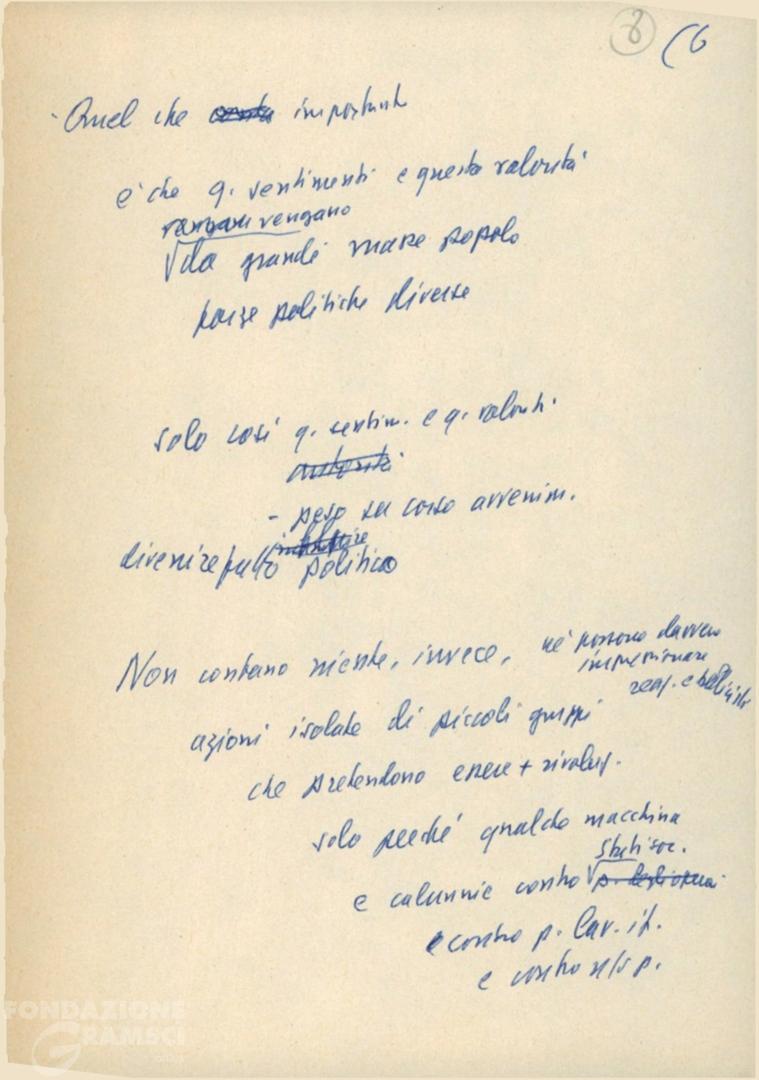 8 (6
Quel che conta importante
è che q. sentimenti e questa volontà
vengano
da grandi masse popolo
forze politiche diverse
solo così q. sentim. e q. volont.
- peso su corso avvenim.
divenire fatto politico
Non contano niente, invece, né possono davvero
impressionare
reaz. e bellicisti
azioni isolate di piccoli gruppi
che pretendono essere + rivoluz.
solo perché qualche macchina
Stati soc.
e calunnie contro
e contro p. lav. it.
e contro n/s p.
FONDAZIONE
GRAMSCI